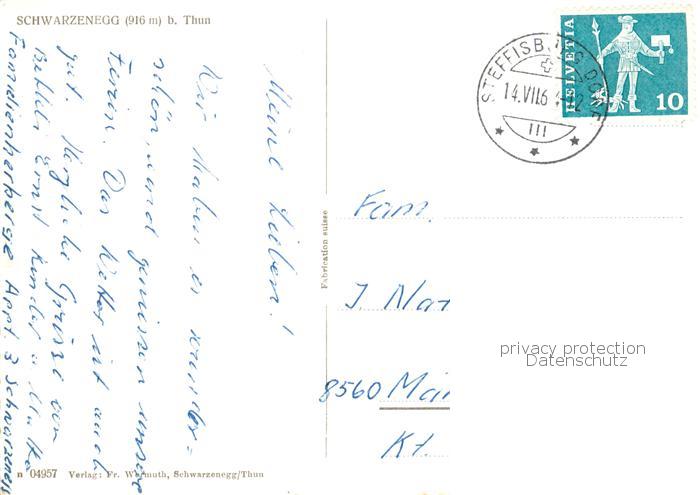 SCHWARZENEGG (916 m) b. Thun
Meine Lieben!
Wir haben es wunder-
schön, und geniessen unsere
Ferien. Das Wetter ist auch
gut. Herzliche Grüsse von
Ernst Kinder u.
Familienherberge Appt. 3 Schwarzenegg
n 04957 Verlag: Fr. Wermuth, Schwarzenegg/Thun
Fabrication suisse
STEFFISBURG DORF
14.VII.6
III
HELVETIA
10
Fam.
J. Mar
8560 Mär
Kt.
privacy protection
Datenschutz